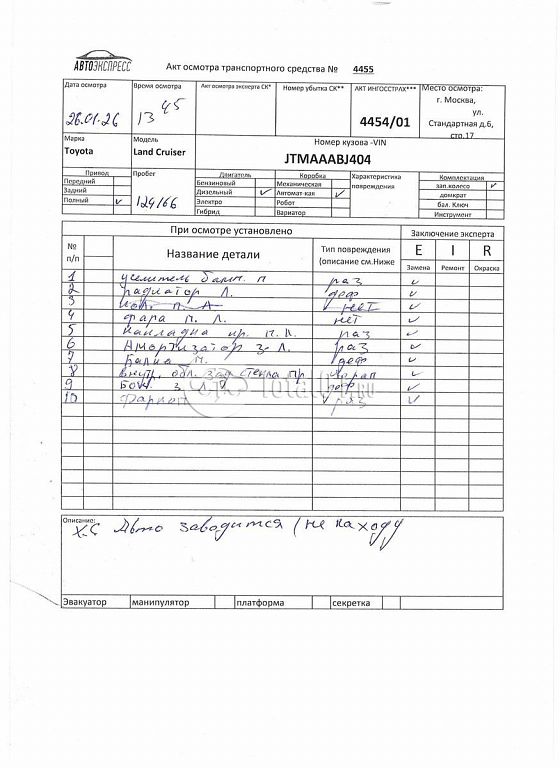 АВТОЭКСПРЕСС
Акт осмотра транспортного средства № 4455
Дата осмотра
28.01.26
Время осмотра
13 45
Акт осмотра эксперта СК*
Номер убытка СК**
АКТ ИНГОССТРАХ***
4454/01
Место осмотра:
г. Москва,
ул.
Стандартная д.6,
стр.17
Марка
Toyota
Модель
Land Cruiser
Номер кузова -VIN
JTMAAABJ404
Привод
Передний
Задний
Полный ✓
Пробег
124166
Двигатель
Бензиновый
Дизельный ✓
Электро
Гибрид
Коробка
Механическая
Автомат-кая ✓
Робот
Вариатор
Характеристика
повреждения
Комплектация
зап.колесо ✓
домкрат
бал. Ключ
Инструмент
При осмотре установлено
Заключение эксперта
№
п/п
Название детали
Тип повреждения
(описание см.Ниже
E I R
Замена Ремонт Окраска
1 усилитель бамп. п раз ✓
2 радиатор Л. деф ✓
3 п. нет ✓
4 фара п. Л. нет ✓
5 накладка пр. п. Л. раз ✓
6 Амортизатор з. Л. раз ✓
7 Балка п. деф ✓
8 внут. обл. зад стекла пр царап ✓
9 Бок. з. Л. деф ✓
10 Фаркоп раз ✓
Total01.ru
Описание:
Х.С Авто заводится (не находу
Эвакуатор манипулятор платформа секретка